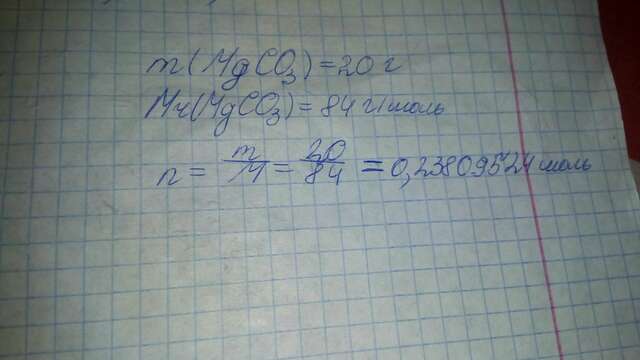 m(MgCO₃)=20 г
Mr(MgCO₃)=84 г/моль
n = m/M = 20/84 = 0,23809524 моль